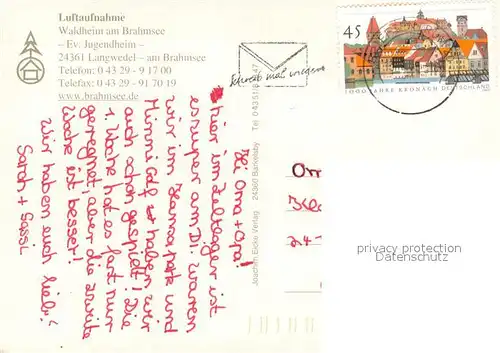 Luftaufnahme
Waldheim am Brahmsee
– Ev. Jugendheim –
24361 Langwedel – am Brahmsee
Telefon: 0 43 29 - 9 17 00
Telefax: 0 43 29 - 91 70 19
www.brahmsee.de
Schreib mal wieder
45
1000 JAHRE KRONACH DEUTSCHLAND
Joachim Eicke Verlag 24360 Barkelsby Tel 0 43 51/8
Hei Oma + Opa!
hier im Zeltlager ist
es super am DI. waren
wir im Hansapark und
Minni Golf ist haben wir
auch schon gespielt! Die
1. Woche hat es fast nur
geregnet aber die zweite
Woche ist besser!
Wir haben euch lieb!
Sarah + Sassi
24-
privacy protection
Datenschutz